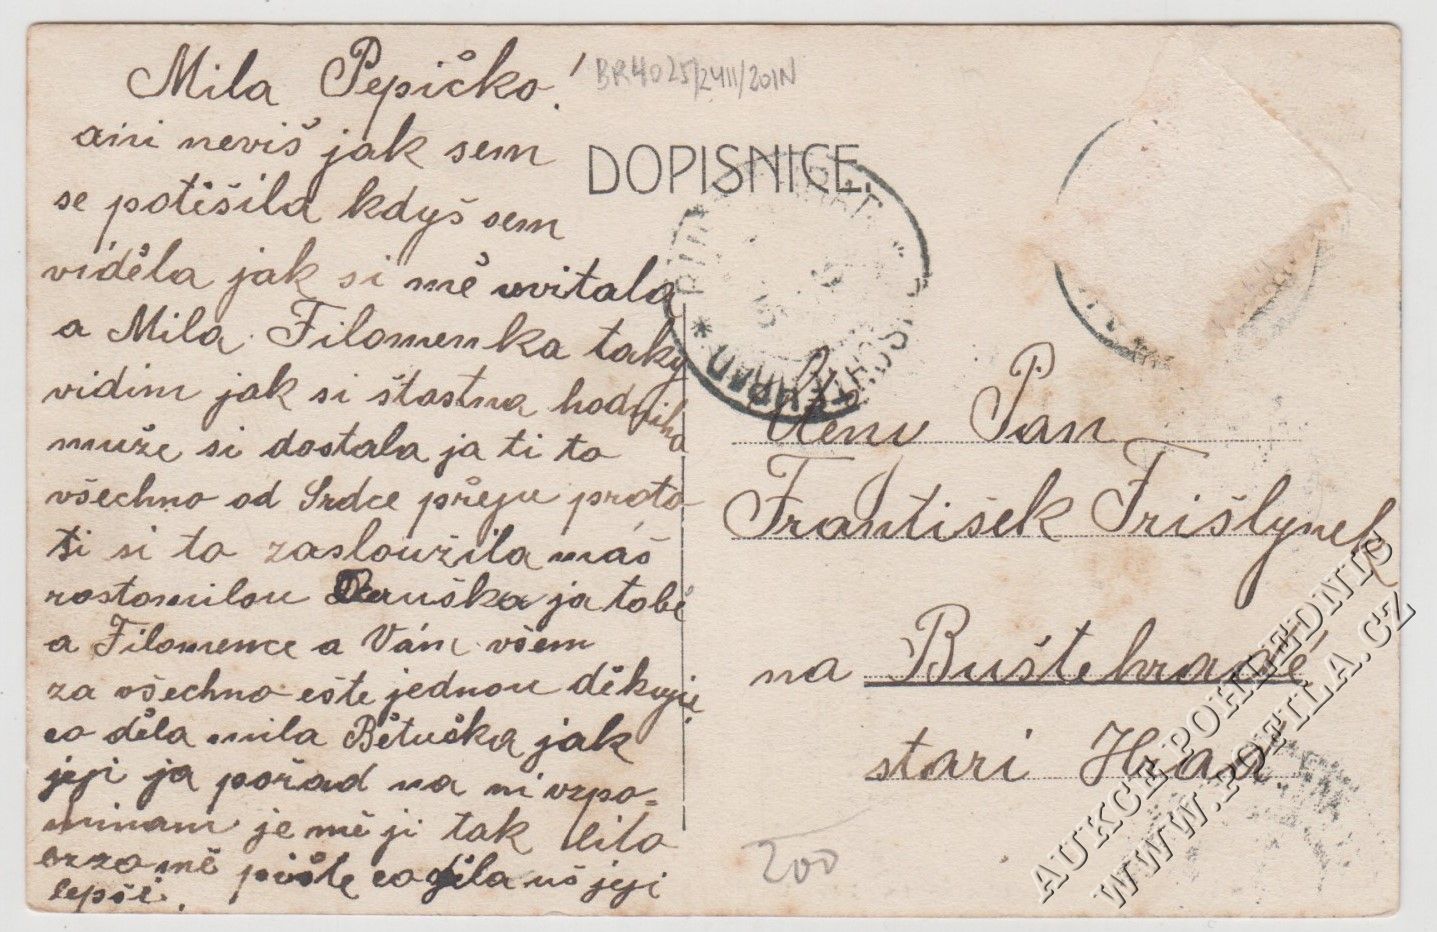 Mila Pepičko!
ani neviš jak sem
se potěšila kdyš sem
viděla jak si mě uvitala
a Mila Filomenka taky
vidim jak si šťastna hodniho
muže si dostala ja ti to
všechno od Srdce přeju proto
ti si to zasloužila maš
rostomilou ja tobě
a Filomence a Vám všem
za všechno ešte jednou děkuji
co děla mila Bětuška jak
jeji ja pořad na ni vzpo=
minam je mě ji tak lito
brzo mě pište co děla uš jeji
lepši.
BR4025/2411/201N
DOPISNICE.
BUŠTĚHRAD
Ctěnv Pan
František Frišlynek
na Buštehradě
stari Hrad
200
AUKCE POHLEDNIC
WWW.POFILA.CZ